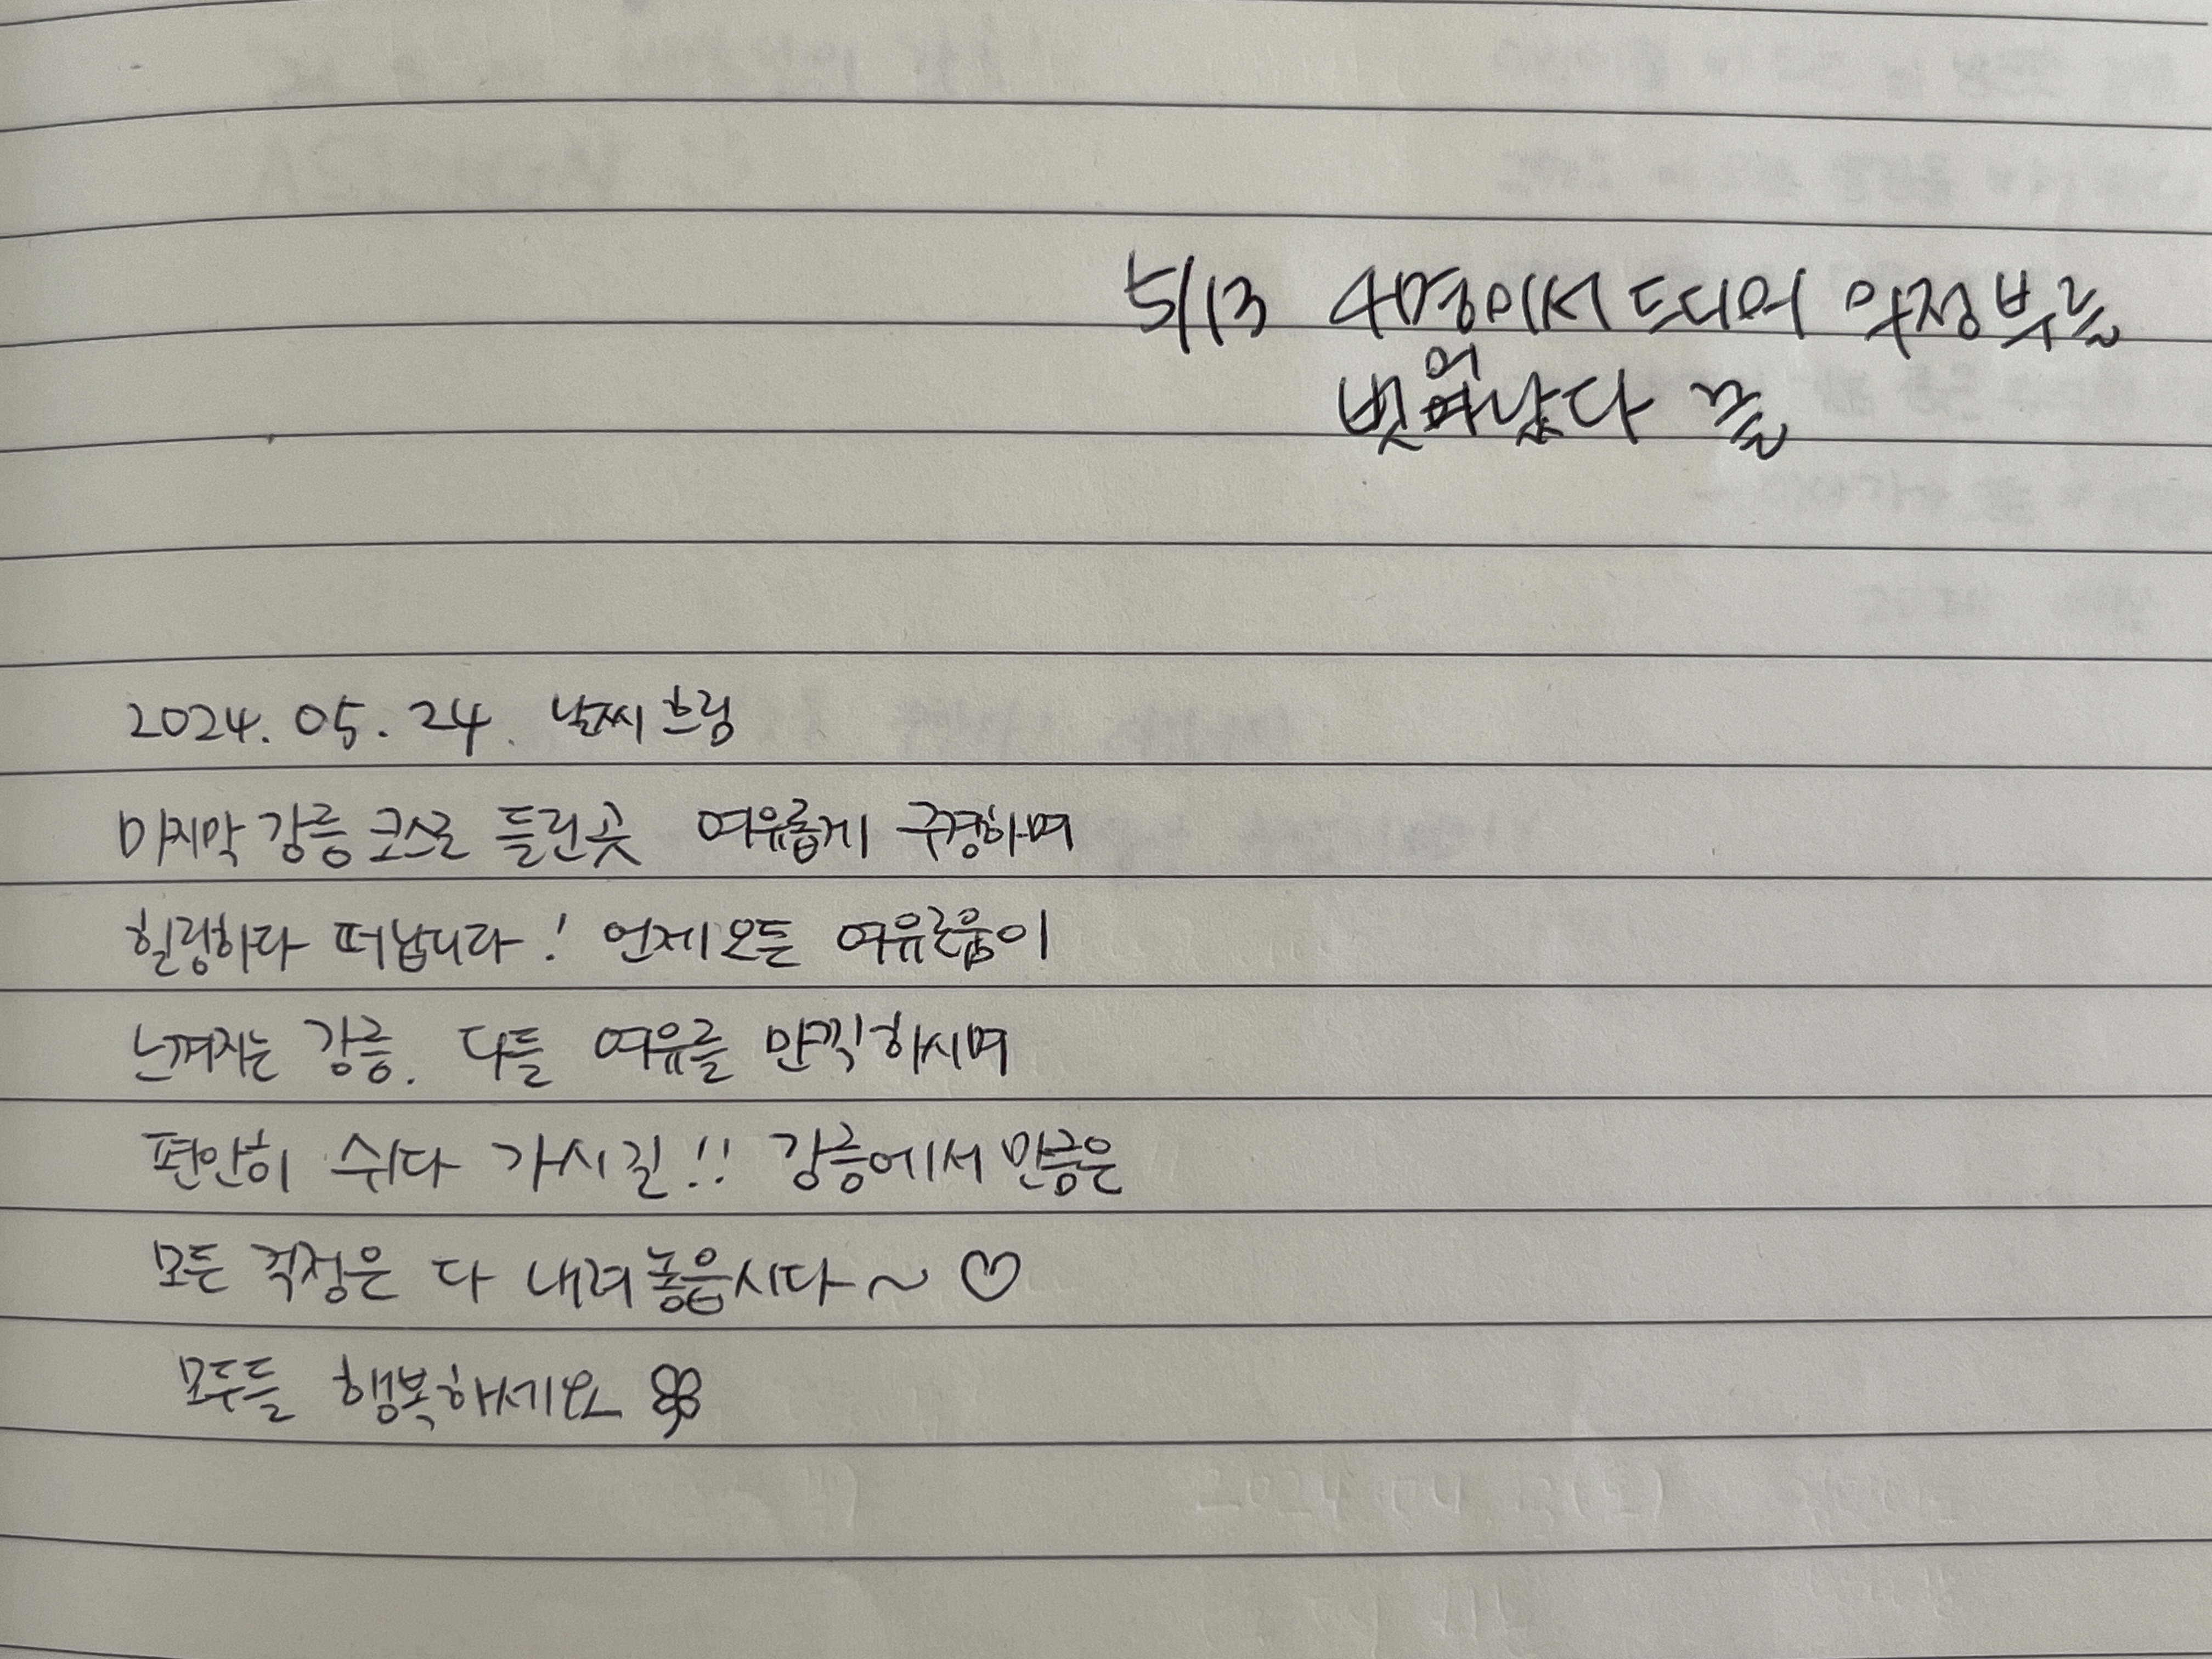 5/13 4명이서 드디어 의정부를
벗어났다 굳
2024. 05. 24. 날씨 흐림
마지막 강릉 코스로 들린곳 여유롭게 구경하며
힐링하다 떠납니다! 언제오든 여유로움이
느껴지는 강릉. 다들 여유를 만끽하시며
편안히 쉬다 가시길!! 강릉에서 만큼은
모든 걱정은 다 내려놓읍시다~ ♡
모두들 행복하세요